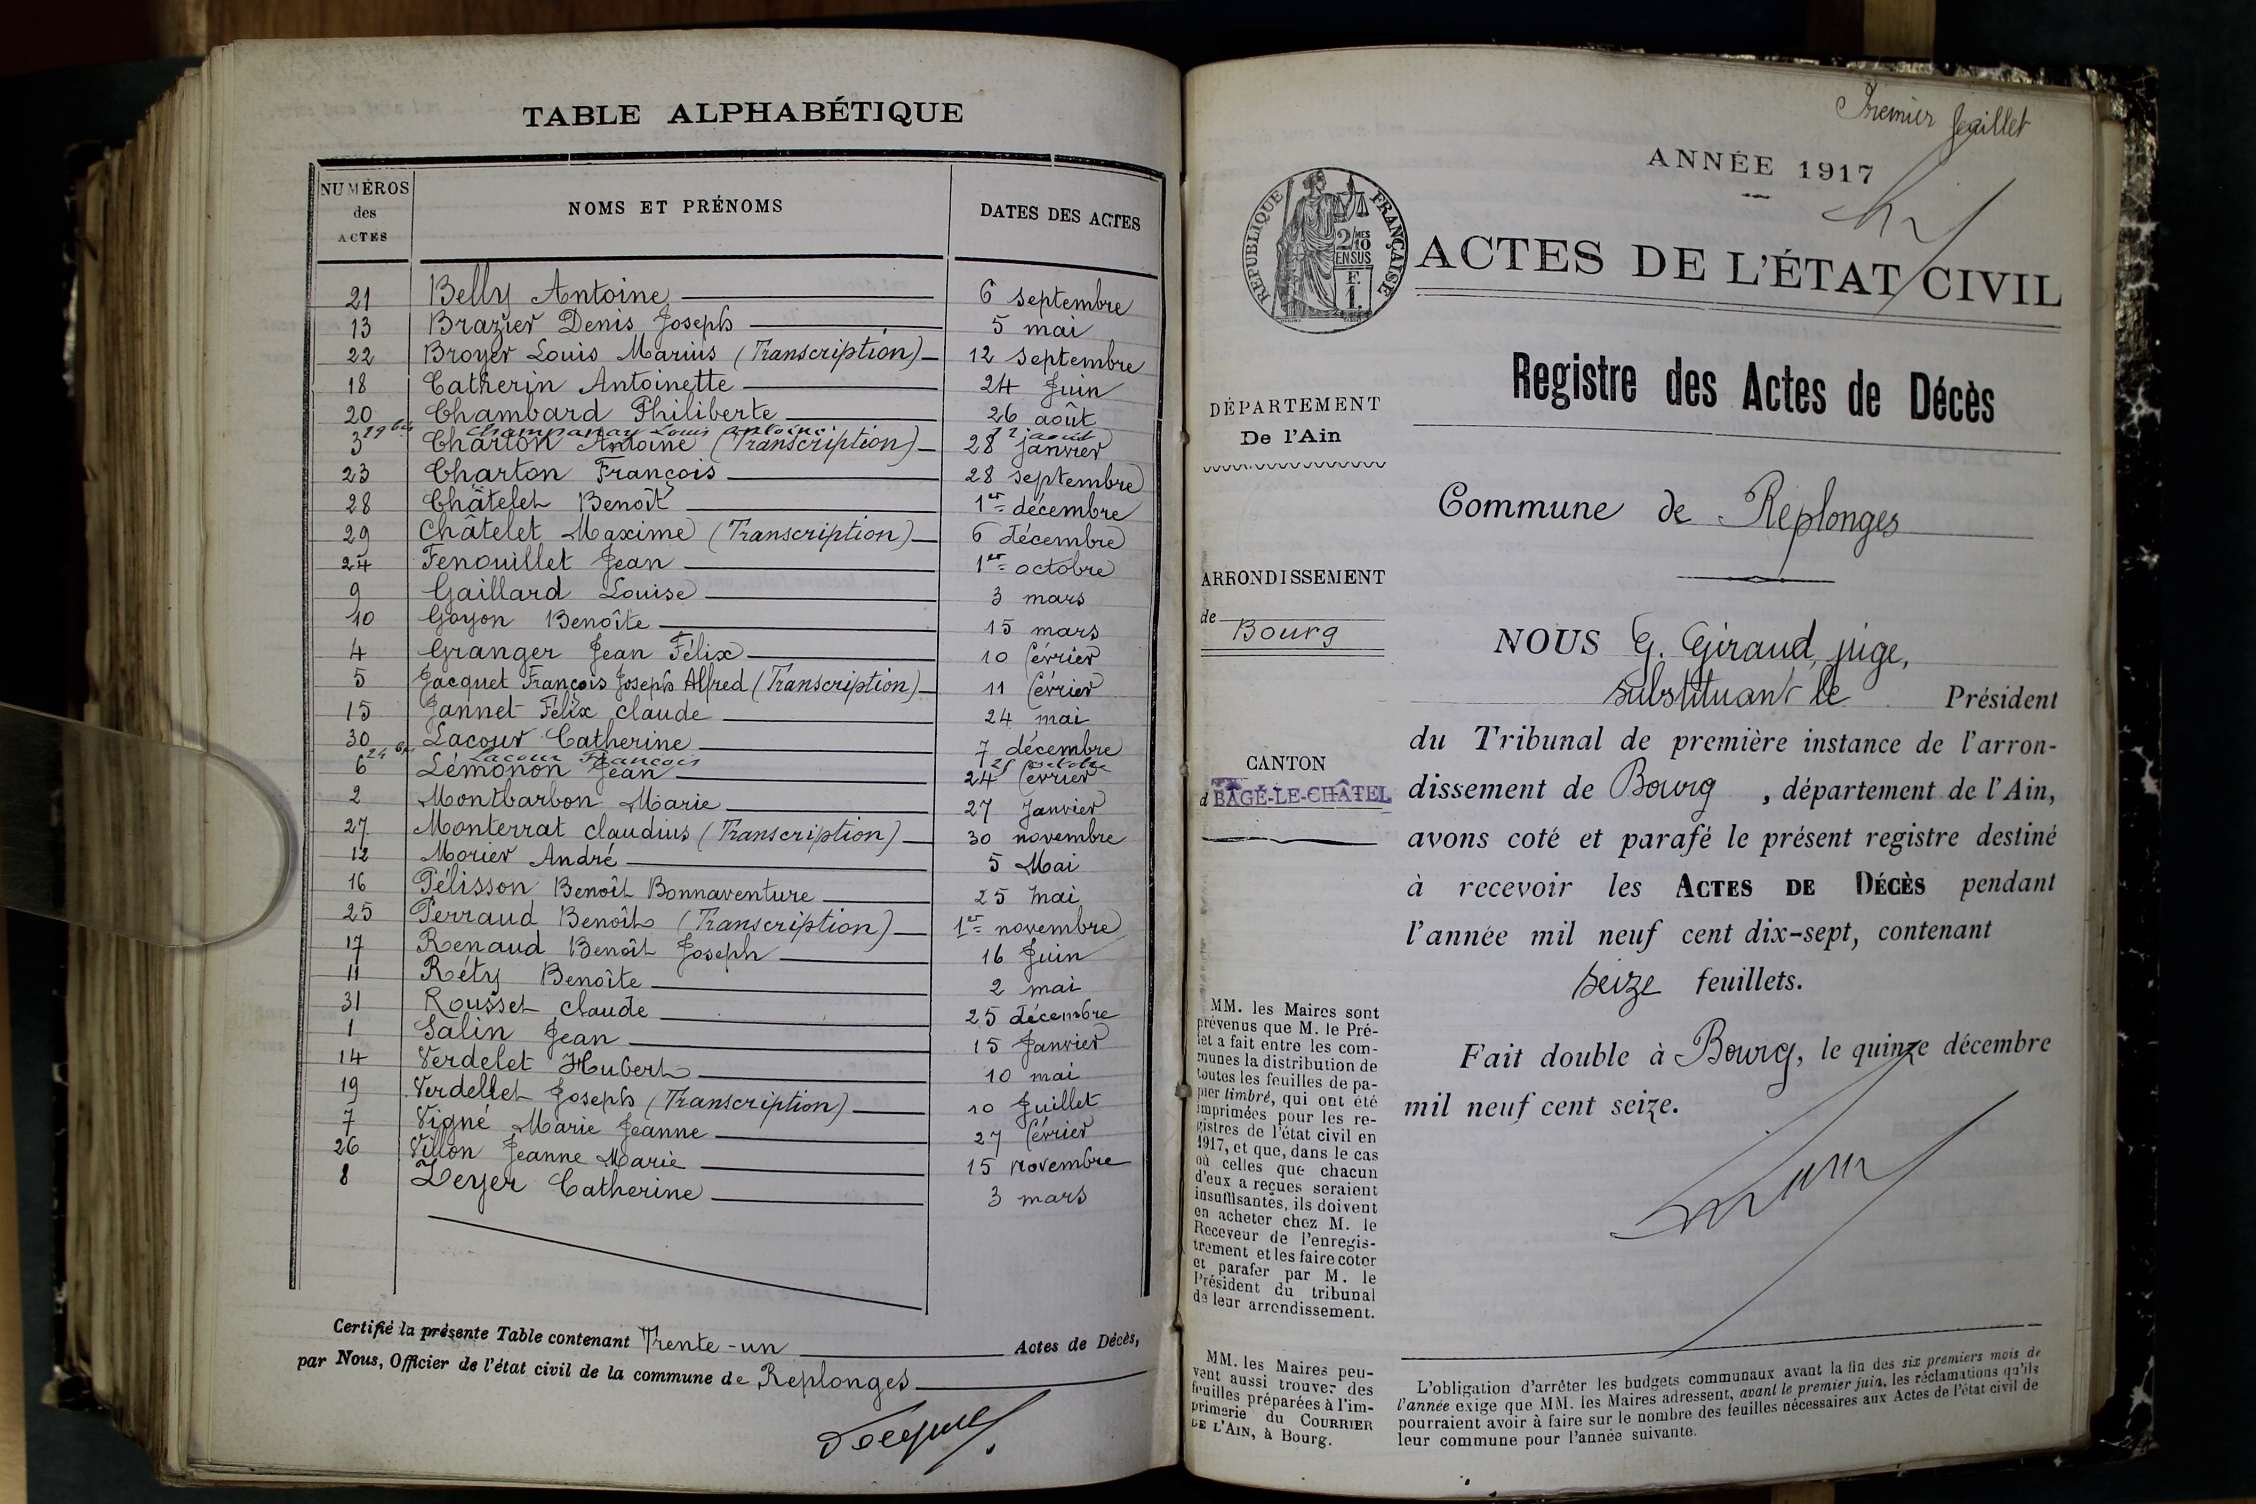 TABLE ALPHABÉTIQUE
NUMÉROS des ACTES NOMS ET PRÉNOMS DATES DES ACTES
21 Belly Antoine 6 septembre
13 Brazier Denis Joseph 5 mai
22 Broyer Louis Marius (Transcription) 12 septembre
18 Catherin Antoinette 24 Juin
20 Chambard Philiberte 26 août
19 bis Champanay Louis Antoine 12 aout
3 Charton Antoine (Transcription) 28 janvier
23 Charton François 28 septembre
28 Châtelet Benoît 1er décembre
29 Châtelet Maxime (Transcription) 6 décembre
24 Fenouillet Jean 1er octobre
9 Gaillard Louise 3 mars
10 Goyon Benoîte 15 mars
4 Granger Jean Félix 10 février
5 Jacquet François Joseph Alfred (Transcription) 11 février
15 Jannet Félix Claude 24 mai
30 Lacour Catherine 7 décembre
24 bis Lacour François octobre
6 Lémonon Jean 24 février
2 Montbarbon Marie 27 Janvier
27 Monterrat Claudius (Transcription) 30 novembre
12 Morier André 5 Mai
16 Pélisson Benoît Bonnaventure 25 mai
25 Perraud Benoît (Transcription) 1er novembre
17 Renaud Benoît Joseph 16 Juin
11 Réty Benoîte 2 mai
31 Rousset Claude 25 décembre
1 Salin Jean 15 Janvier
14 Verdelet Hubert 10 mai
19 Verdellet Joseph (Transcription) 10 Juillet
7 Vigné Marie Jeanne 27 février
26 Villon Jeanne Marie 15 novembre
8 Zeyer Catherine 3 mars
Certifié la présente Table contenant Trente-un Actes de Décès,
par Nous, Officier de l'état civil de la commune de Replonges
Premier feuillet
ANNÉE 1917
RÉPUBLIQUE FRANÇAISE
2/10 MES
EN SUS
F.
1.
ACTES DE L'ÉTAT CIVIL
Registre des Actes de Décès
DÉPARTEMENT
De l'Ain
Commune de Replonges
ARRONDISSEMENT
de Bourg
CANTON
d BAGÉ-LE-CHÂTEL
NOUS G. Giraud, juge,
substituant le Président
du Tribunal de première instance de l'arron-
dissement de Bourg, département de l'Ain,
avons coté et parafé le présent registre destiné
à recevoir les ACTES DE DÉCÈS pendant
l'année mil neuf cent dix-sept, contenant
seize feuillets.
Fait double à Bourg, le quinze décembre
mil neuf cent seize.
MM. les Maires sont
prévenus que M. le Pré-
fet a fait entre les com-
munes la distribution de
toutes les feuilles de pa-
pier timbré, qui ont été
imprimées pour les re-
gistres de l'état civil en
1917, et que, dans le cas
où celles que chacun
d'eux a reçues seraient
insuffisantes, ils doivent
en acheter chez M. le
Receveur de l'enregis-
trement et les faire coter
et parafer par M. le
Président du tribunal
de leur arrondissement.
MM. les Maires peu-
vent aussi trouver des
feuilles préparées à l'im-
primerie du COURRIER
DE L'AIN, à Bourg.
L'obligation d'arrêter les budgets communaux avant la fin des six premiers mois de
l'année exige que MM. les Maires adressent, avant le premier juin, les réclamations qu'ils
pourraient avoir à faire sur le nombre des feuilles nécessaires aux Actes de l'état civil de
leur commune pour l'année suivante.